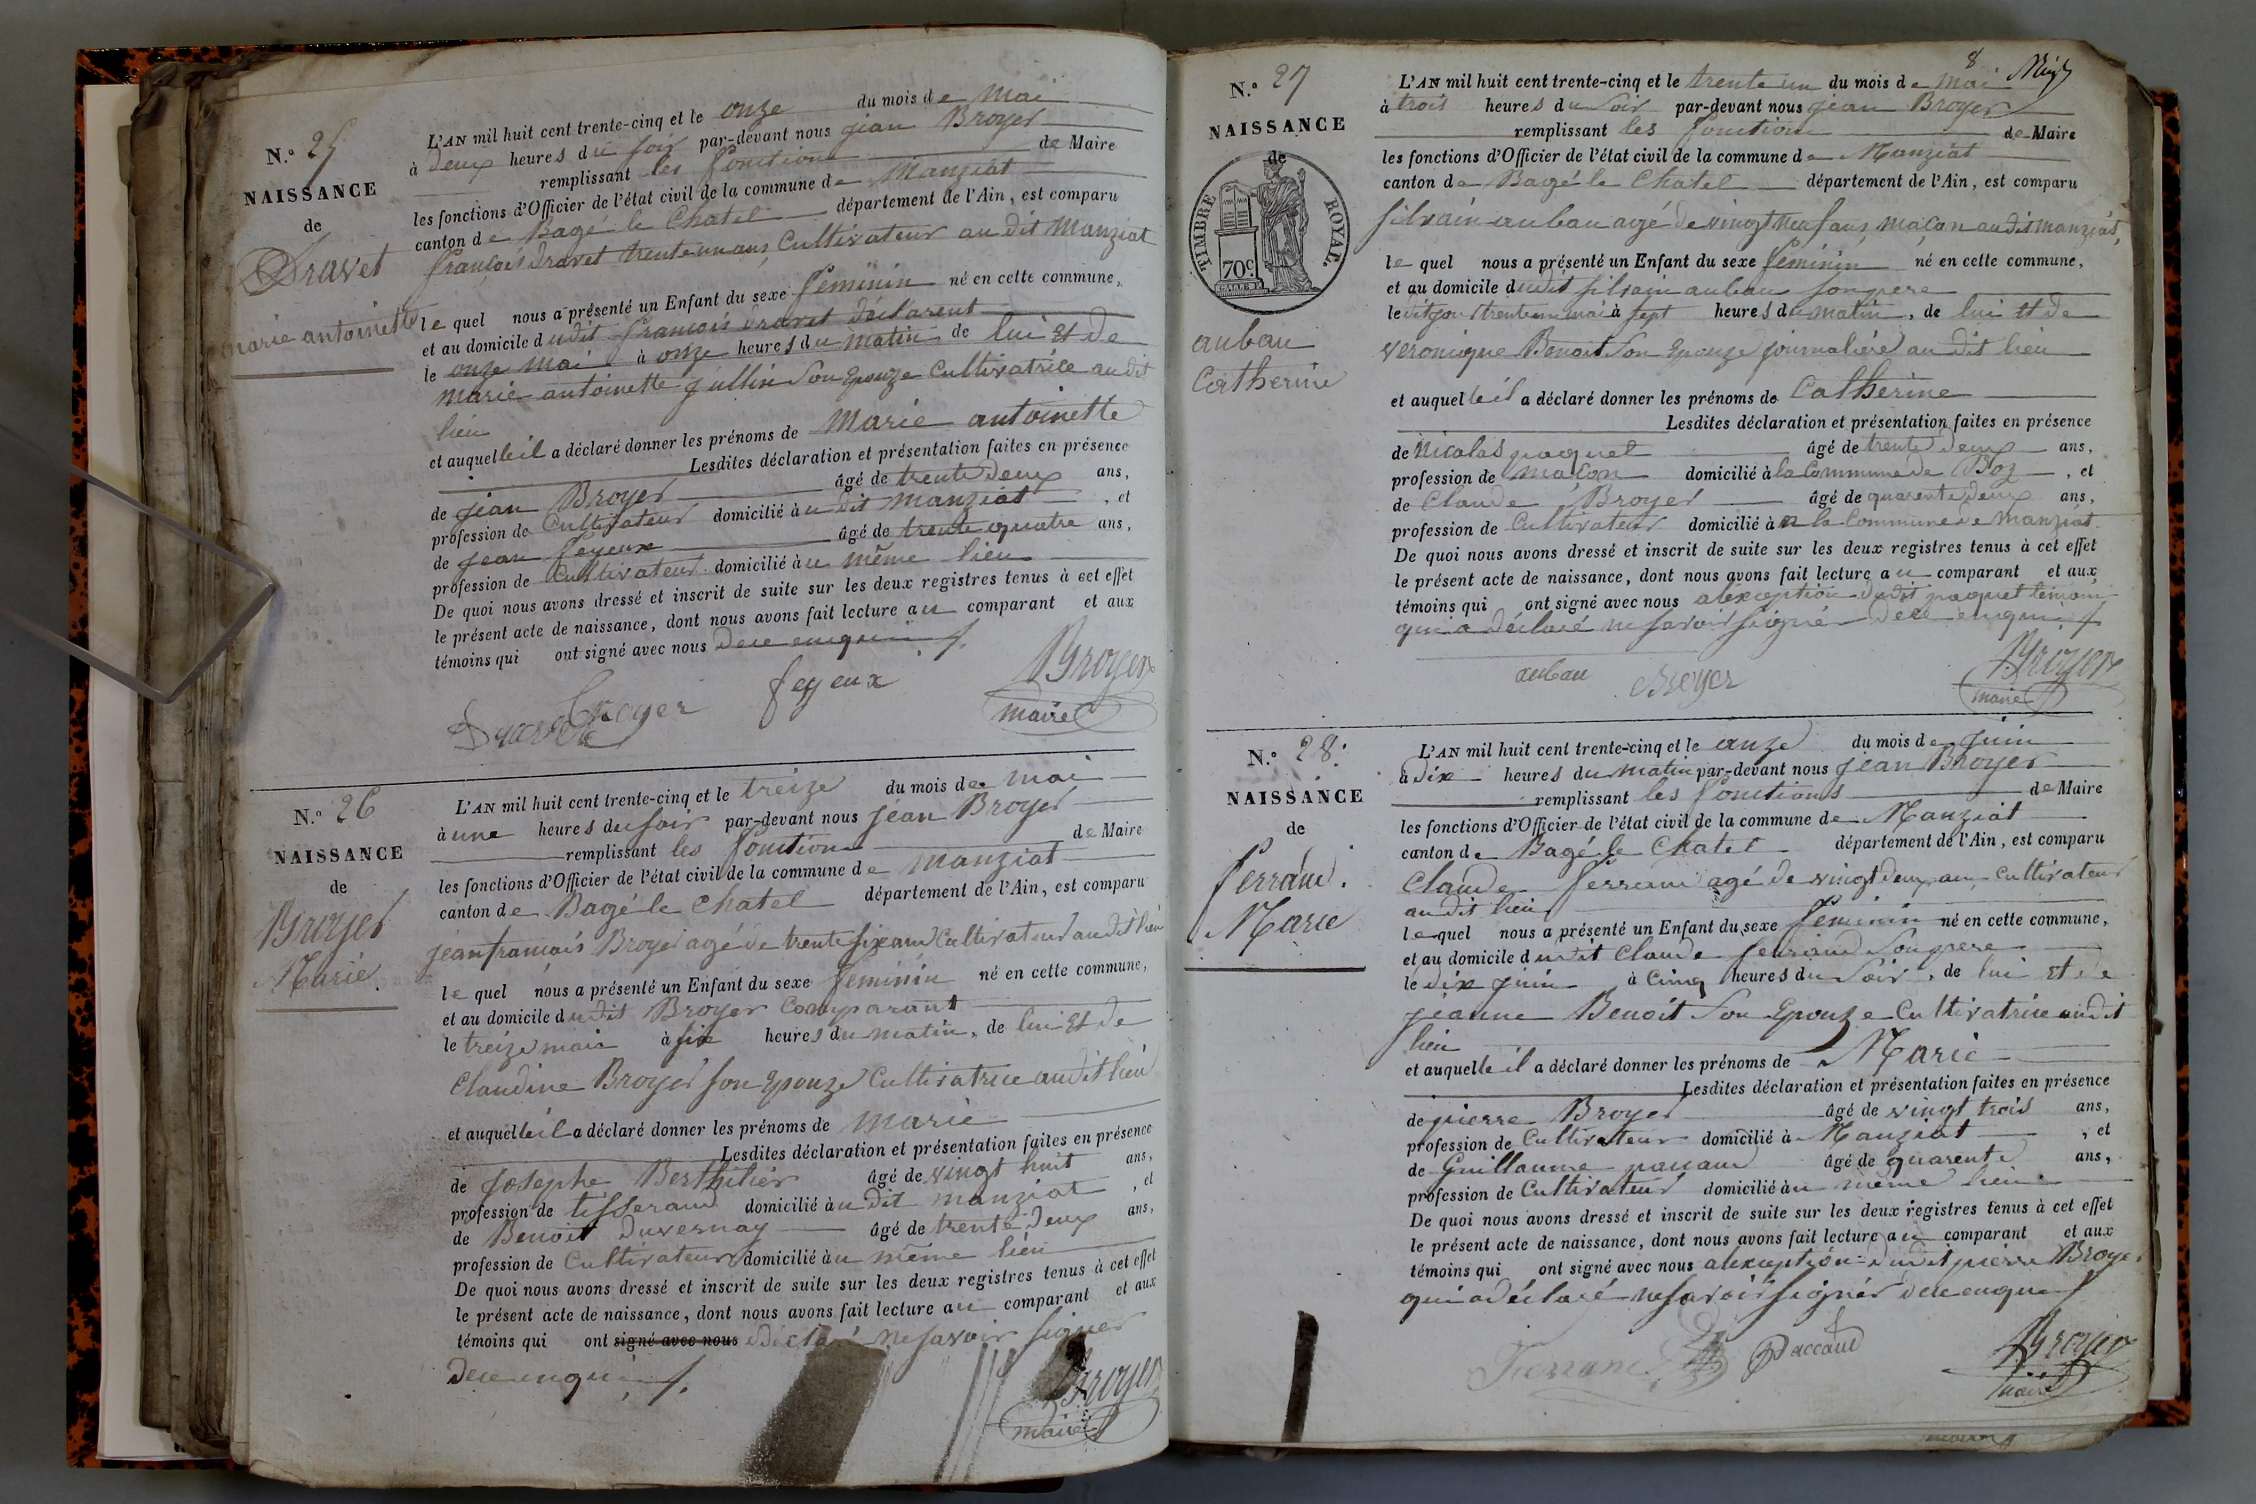 N.º 25
NAISSANCE
de
Dravet
marie antoinette
L'AN mil huit cent trente-cinq et le onze du mois de mai
à deux heures du soir par-devant nous jean Broyer
remplissant les fonctions de Maire
les fonctions d'Officier de l'état civil de la commune de Manziat
canton de Bagé le Chatel département de l'Ain, est comparu
françois dravet trente un ans, Cultivateur au dit Manziat
le quel nous a présenté un Enfant du sexe féminin né en cette commune,
et au domicile dudit francois dravet déclarent
le onze mai à onze heures du matin, de lui Et de
marie antoinette jullin Son Epouze Cultivatrice au dit
lieu
et auquel le il a déclaré donner les prénoms de Marie antoinette
Lesdites déclaration et présentation faites en présence
de jean Broyer âgé de trente deux ans,
profession de Cultivateur domicilié à u dit manziat, et
de jean feyeux âgé de trente quatre ans,
profession de Cultivateur domicilié à u même lieu
De quoi nous avons dressé et inscrit de suite sur les deux registres tenus à cet effet
le présent acte de naissance, dont nous avons fait lecture au comparant et aux
témoins qui ont signé avec nous dece enquis
Dravet Broyer feyeux Broyer
maire
N.º 26
NAISSANCE
de
Broyer
Marie
L'AN mil huit cent trente-cinq et le treize du mois de mai
à une heures du soir par-devant nous jean Broyer
remplissant les fonctions de Maire
les fonctions d'Officier de l'état civil de la commune de manziat
canton de Bagé le Chatel département de l'Ain, est comparu
jean francois Broyer agé de trente six ans Cultivateur au dit lieu
le quel nous a présenté un Enfant du sexe feminin né en cette commune,
et au domicile dudit Broyer Comparant
le treize mai à six heures du matin, de lui Et de
Claudine Broyer son Epouze Cultivatrice au dit lieu
et auquel le il a déclaré donner les prénoms de marie
Lesdites déclaration et présentation faites en présence
de josephe Berthilier âgé de vingt huit ans,
profession de tisserand domicilié à u dit manziat, et
de Benoit Duvernay âgé de trente deux ans,
profession de Cultivateur domicilié à u même lieu
De quoi nous avons dressé et inscrit de suite sur les deux registres tenus à cet effet
le présent acte de naissance, dont nous avons fait lecture au comparant et aux
témoins qui ont signé avec nous déclaré ne savoir signer
dece enquis
Broyer
maire
8
N.º 27
NAISSANCE
de
TIMBRE ROYAL.
70c
aubau
Catherine
L'AN mil huit cent trente-cinq et le trente un du mois de mai
à trois heures du soir par-devant nous jean Broyer
remplissant les fonctions de Maire
les fonctions d'Officier de l'état civil de la commune de Manziat
canton de Bagé le Chatel département de l'Ain, est comparu
silvain aubau agé de vingt neuf ans, maçon au dit manziat,
le quel nous a présenté un Enfant du sexe féminin né en cette commune,
et au domicile dudit silvain aubau son pere
le dit jour trente un mai à sept heures du matin, de lui et de
veronique Benoit Son Epouze journalière au dit lieu
et auquel le il a déclaré donner les prénoms de Catherine
Lesdites déclaration et présentation faites en présence
de Nicolas paquet âgé de trente deux ans,
profession de maçon domicilié à la Commune de Boz, et
de Claude Broyer âgé de quarente deux ans,
profession de Cultivateur domicilié à la Commune de manziat
De quoi nous avons dressé et inscrit de suite sur les deux registres tenus à cet effet
le présent acte de naissance, dont nous avons fait lecture au comparant et aux
témoins qui ont signé avec nous alexception dudit paquet temoin
qui a déclaré ne savoir signé dece enquis
aubau Broyer Broyer
maire
N.º 28:
NAISSANCE
de
ferrand.
Marie
L'AN mil huit cent trente-cinq et le onze du mois de juin
à dix heures du matin par-devant nous jean Broyer
remplissant les fonctions de Maire
les fonctions d'Officier de l'état civil de la commune de Manziat
canton de Bagé le Chatel département de l'Ain, est comparu
Claude ferrand agé de vingt deux ans, Cultivateur
au dit lieu
le quel nous a présenté un Enfant du sexe feminin né en cette commune,
et au domicile dudit Claude ferrand Son pere
le dix juin à Cinq heures du soir, de lui Et de
jeanne Benoit Son Epouze Cultivatrice au dit
lieu
et auquel le il a déclaré donner les prénoms de Marie
Lesdites déclaration et présentation faites en présence
de pierre Broyer âgé de vingt trois ans,
profession de Cultivateur domicilié à Manziat, et
de Guillaume paccaud âgé de quarente ans,
profession de Cultivateur domicilié à u même lieu
De quoi nous avons dressé et inscrit de suite sur les deux registres tenus à cet effet
le présent acte de naissance, dont nous avons fait lecture au comparant et aux
témoins qui ont signé avec nous alexception dudit pierre Broyer
qui a déclaré ne savoir signér dece enquis
Ferrand Paccaud Broyer
maire